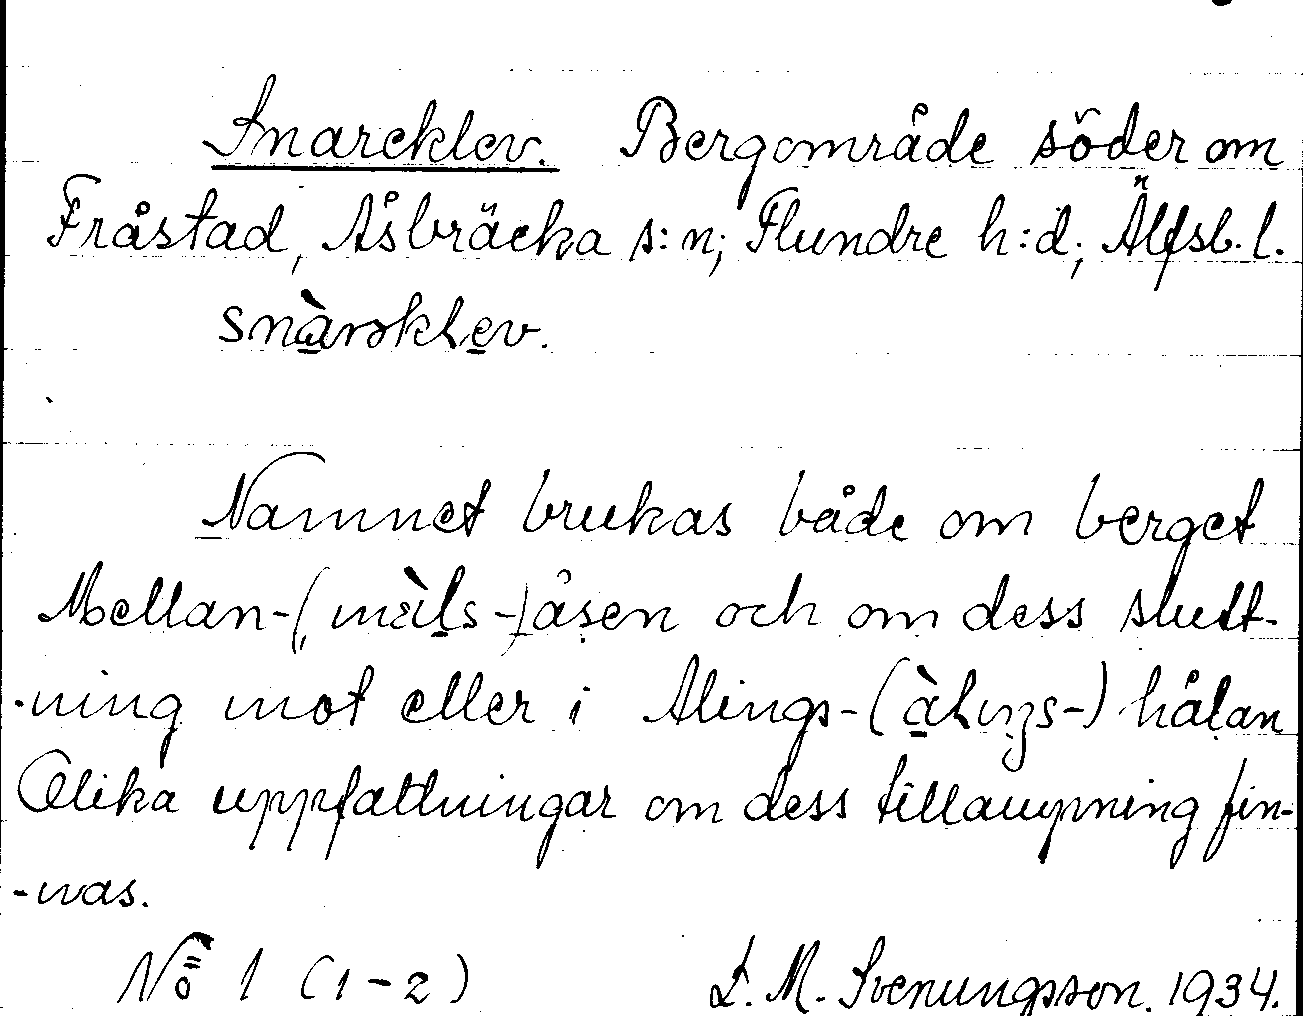 Snareklev. Bergområde söder om
Fråstad, Åsbräcka s:n; Flundre h:d; Älfsb. l.
snàrəklev.
Namnet brukas både om berget
Mellan-(mèls-)åsen och om dess slutt-
-ning mot eller i Alings-(àlıŋs-) hålan
Olika uppfattningar om dess tillämpning fin-
-nas.
No 1 (1-2) L. M. Svenungsson. 1934.